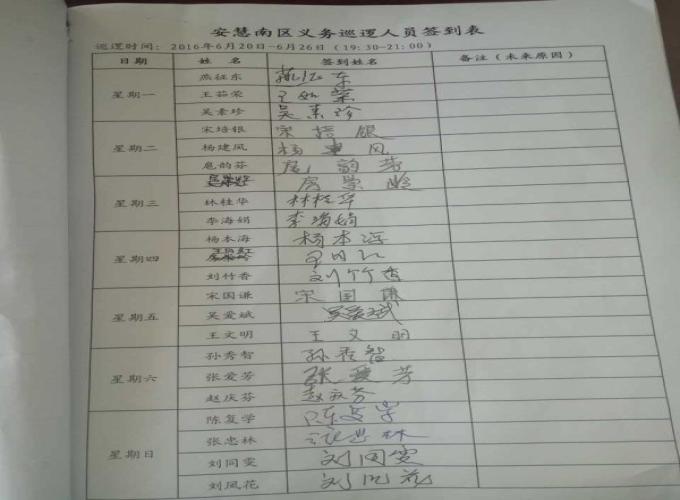 安慧南区义务巡逻人员签到表
巡逻时间：2016年6月20日-6月26日（19:30-21:00）
日期 姓 名 签到姓名 备注（未来原因）
星期一 燕征东 燕征东
王茹荣 王如荣
吴素珍 吴素珍
星期二 宋培银 宋培银
杨建凤 杨建凤
扈韵芬 扈韵芬
星期三 房崇岭
林桂华 林桂华
李海娟 李海娟
星期四 杨本海 杨本海
王月红
刘竹香 刘竹香
星期五 宋国谦 宋国谦
吴爱斌 吴爱斌
王文明 王文明
星期六 孙秀智 孙秀智
张爱芳 张爱芳
赵庆芬 赵庆芬
星期日 陈复学 陈复学
张忠林 张忠林
刘同雯 刘同雯
刘凤花 刘凤花